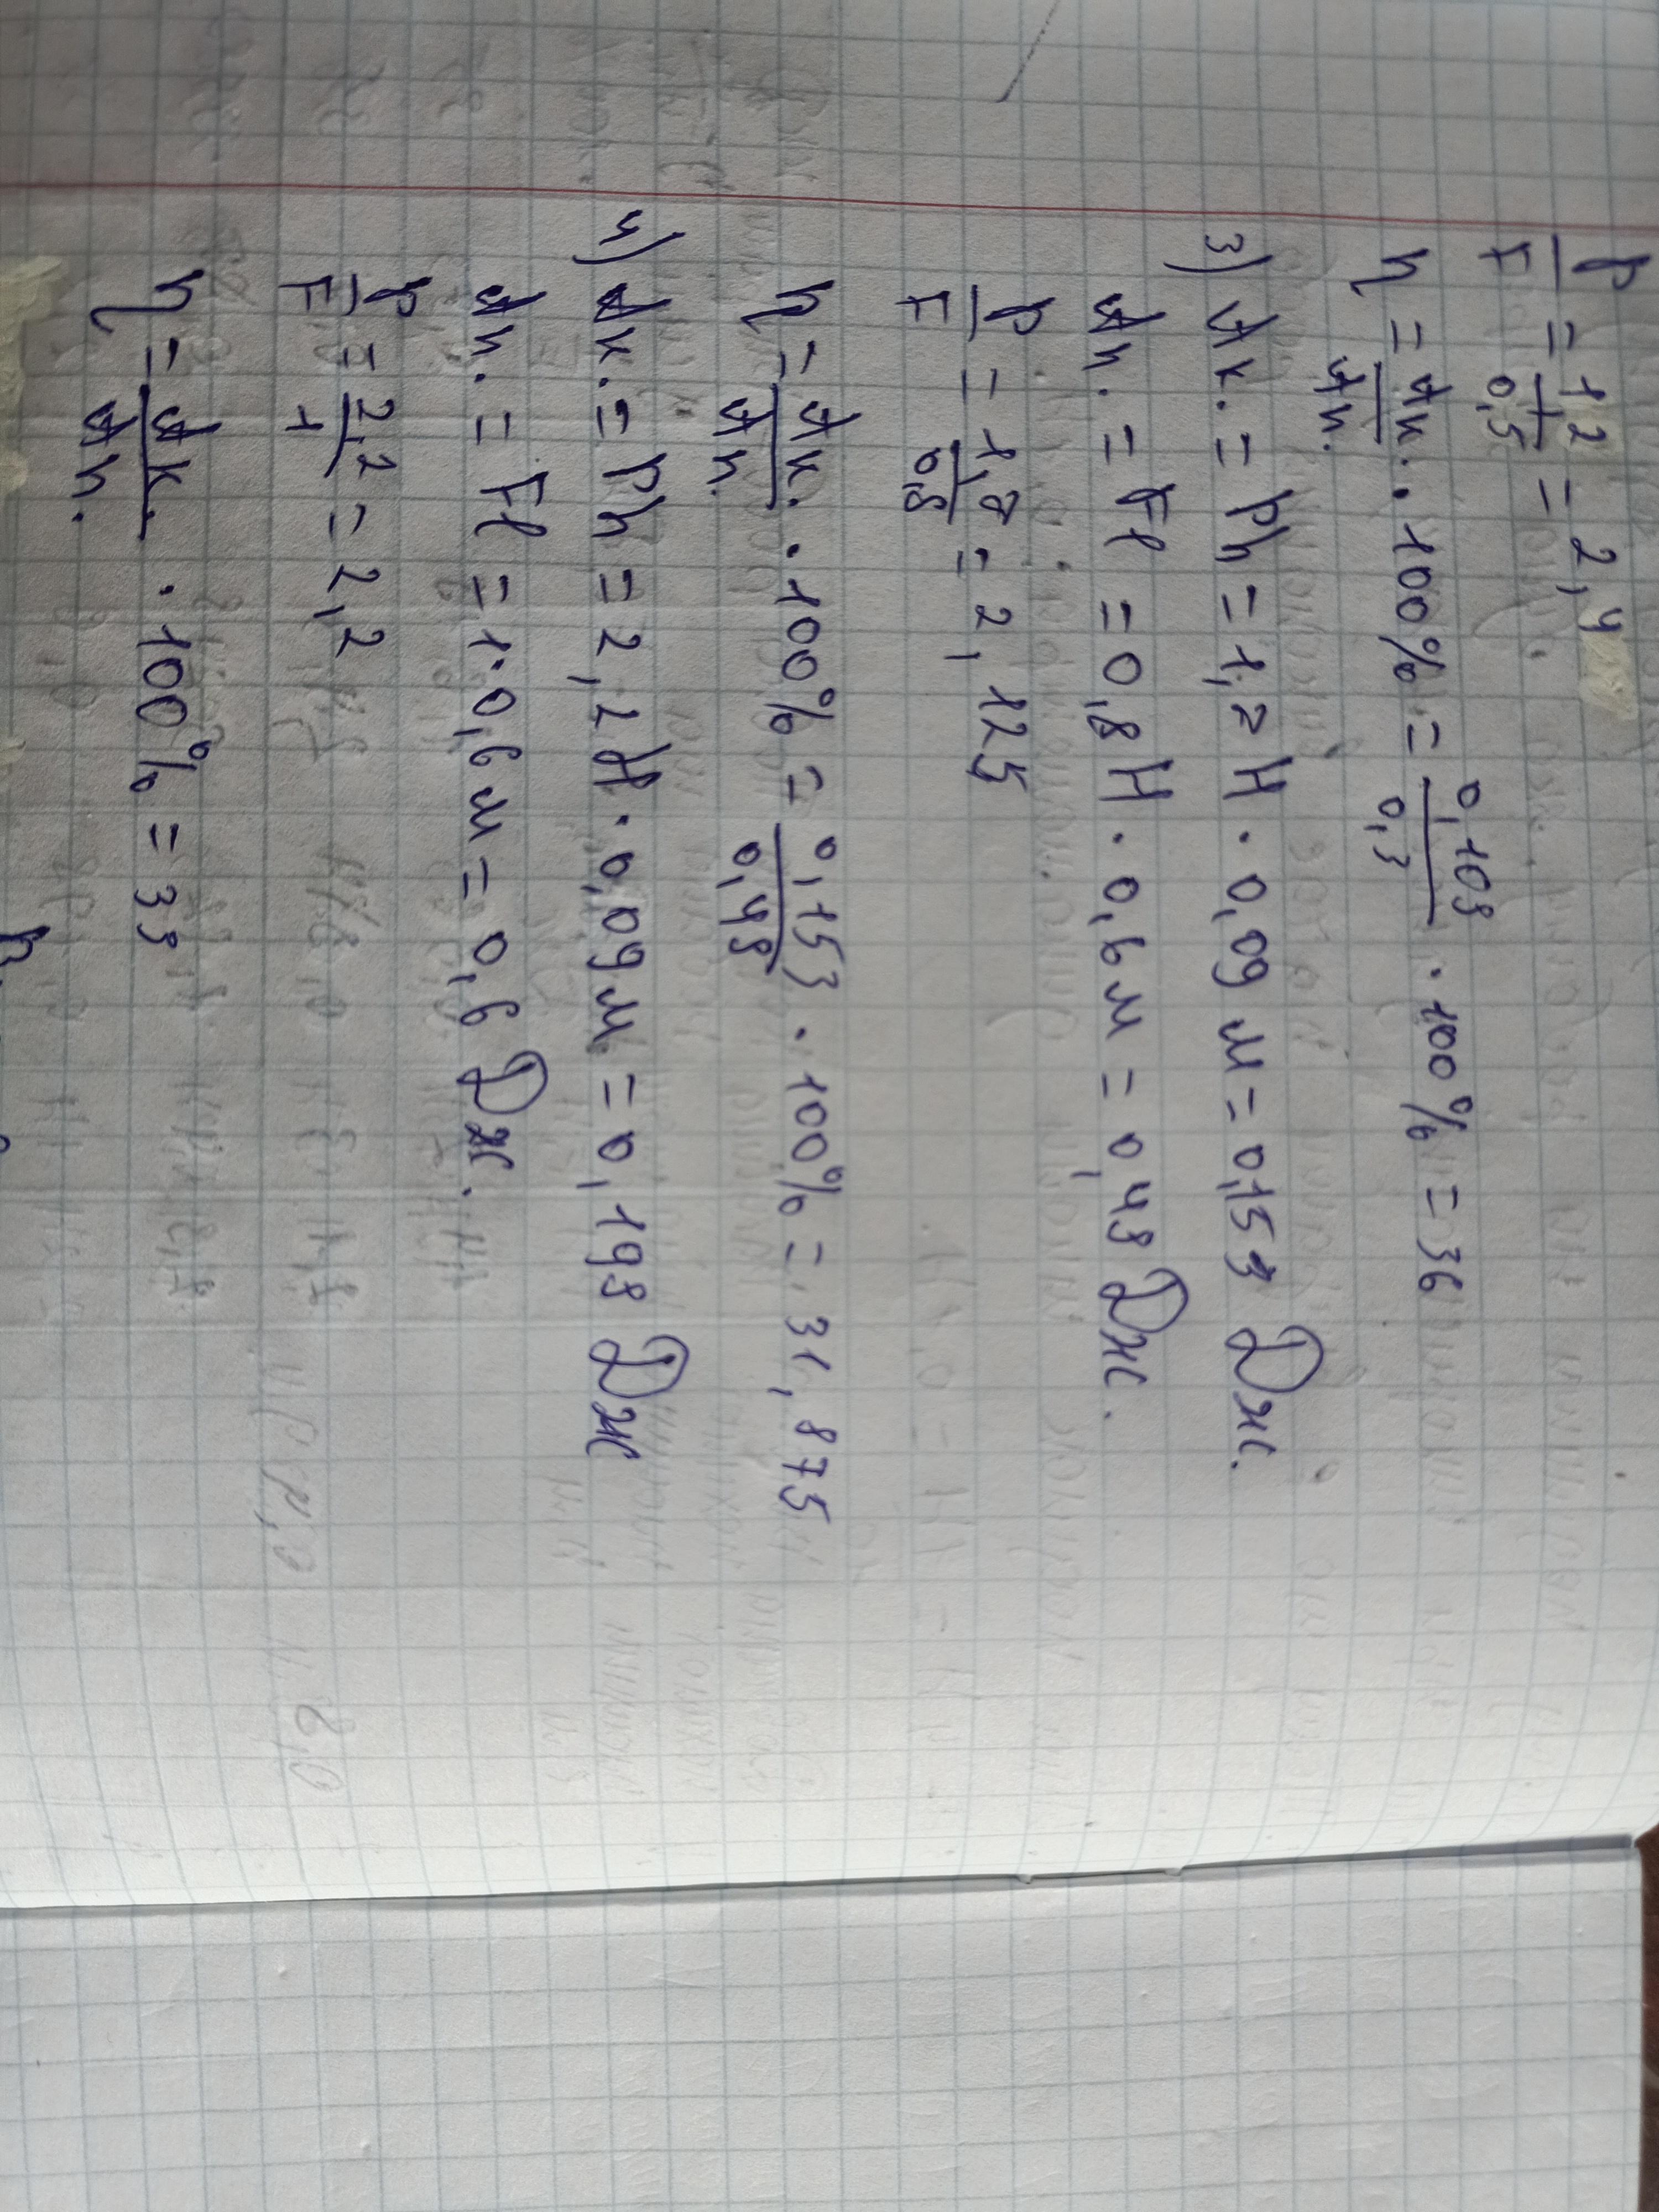 P/F = 1,2/0,5 = 2,4
η = Aк./Aп. · 100% = 0,108/0,3 · 100% = 36
3) Aк. = Ph = 1,7 Н · 0,09 м = 0,153 Дж.
Aп. = Fl = 0,8 Н · 0,6 м = 0,48 Дж.
P/F = 1,7/0,8 = 2,125
η = Aк./Aп. · 100% = 0,153/0,48 · 100% = 31,875
4) Aк. = Ph = 2,2 Н · 0,09 м = 0,198 Дж
Aп. = Fl = 1 · 0,6 м = 0,6 Дж.
P/F = 2,2/1 = 2,2
η = Aк./Aп. · 100% = 33